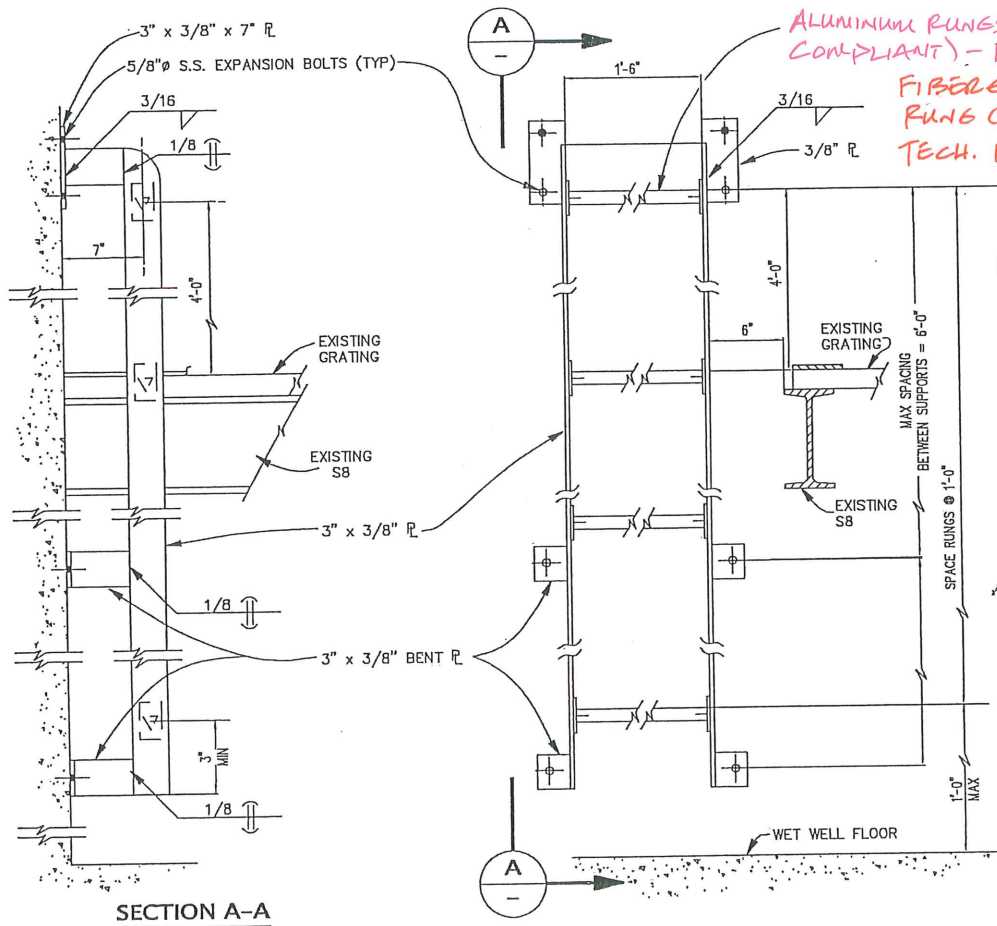 3" x 3/8" x 7" ℞
5/8"ø S.S. EXPANSION BOLTS (TYP)
3/16
1/8
7"
4'-0"
EXISTING
GRATING
EXISTING
S8
3" x 3/8" ℞
1/8
3" x 3/8" BENT ℞
3"
MIN
1/8
SECTION A-A
A
-
1'-6"
ALUMINUM RUNGS
COMPLIANT) -
FIBERG
RUNG
TECH.
3/16
3/8" ℞
4'-0"
6"
EXISTING
GRATING
EXISTING
S8
MAX SPACING
BETWEEN SUPPORTS = 6'-0"
SPACE RUNGS @ 1'-0"
1'-0"
MAX
WET WELL FLOOR
A
-